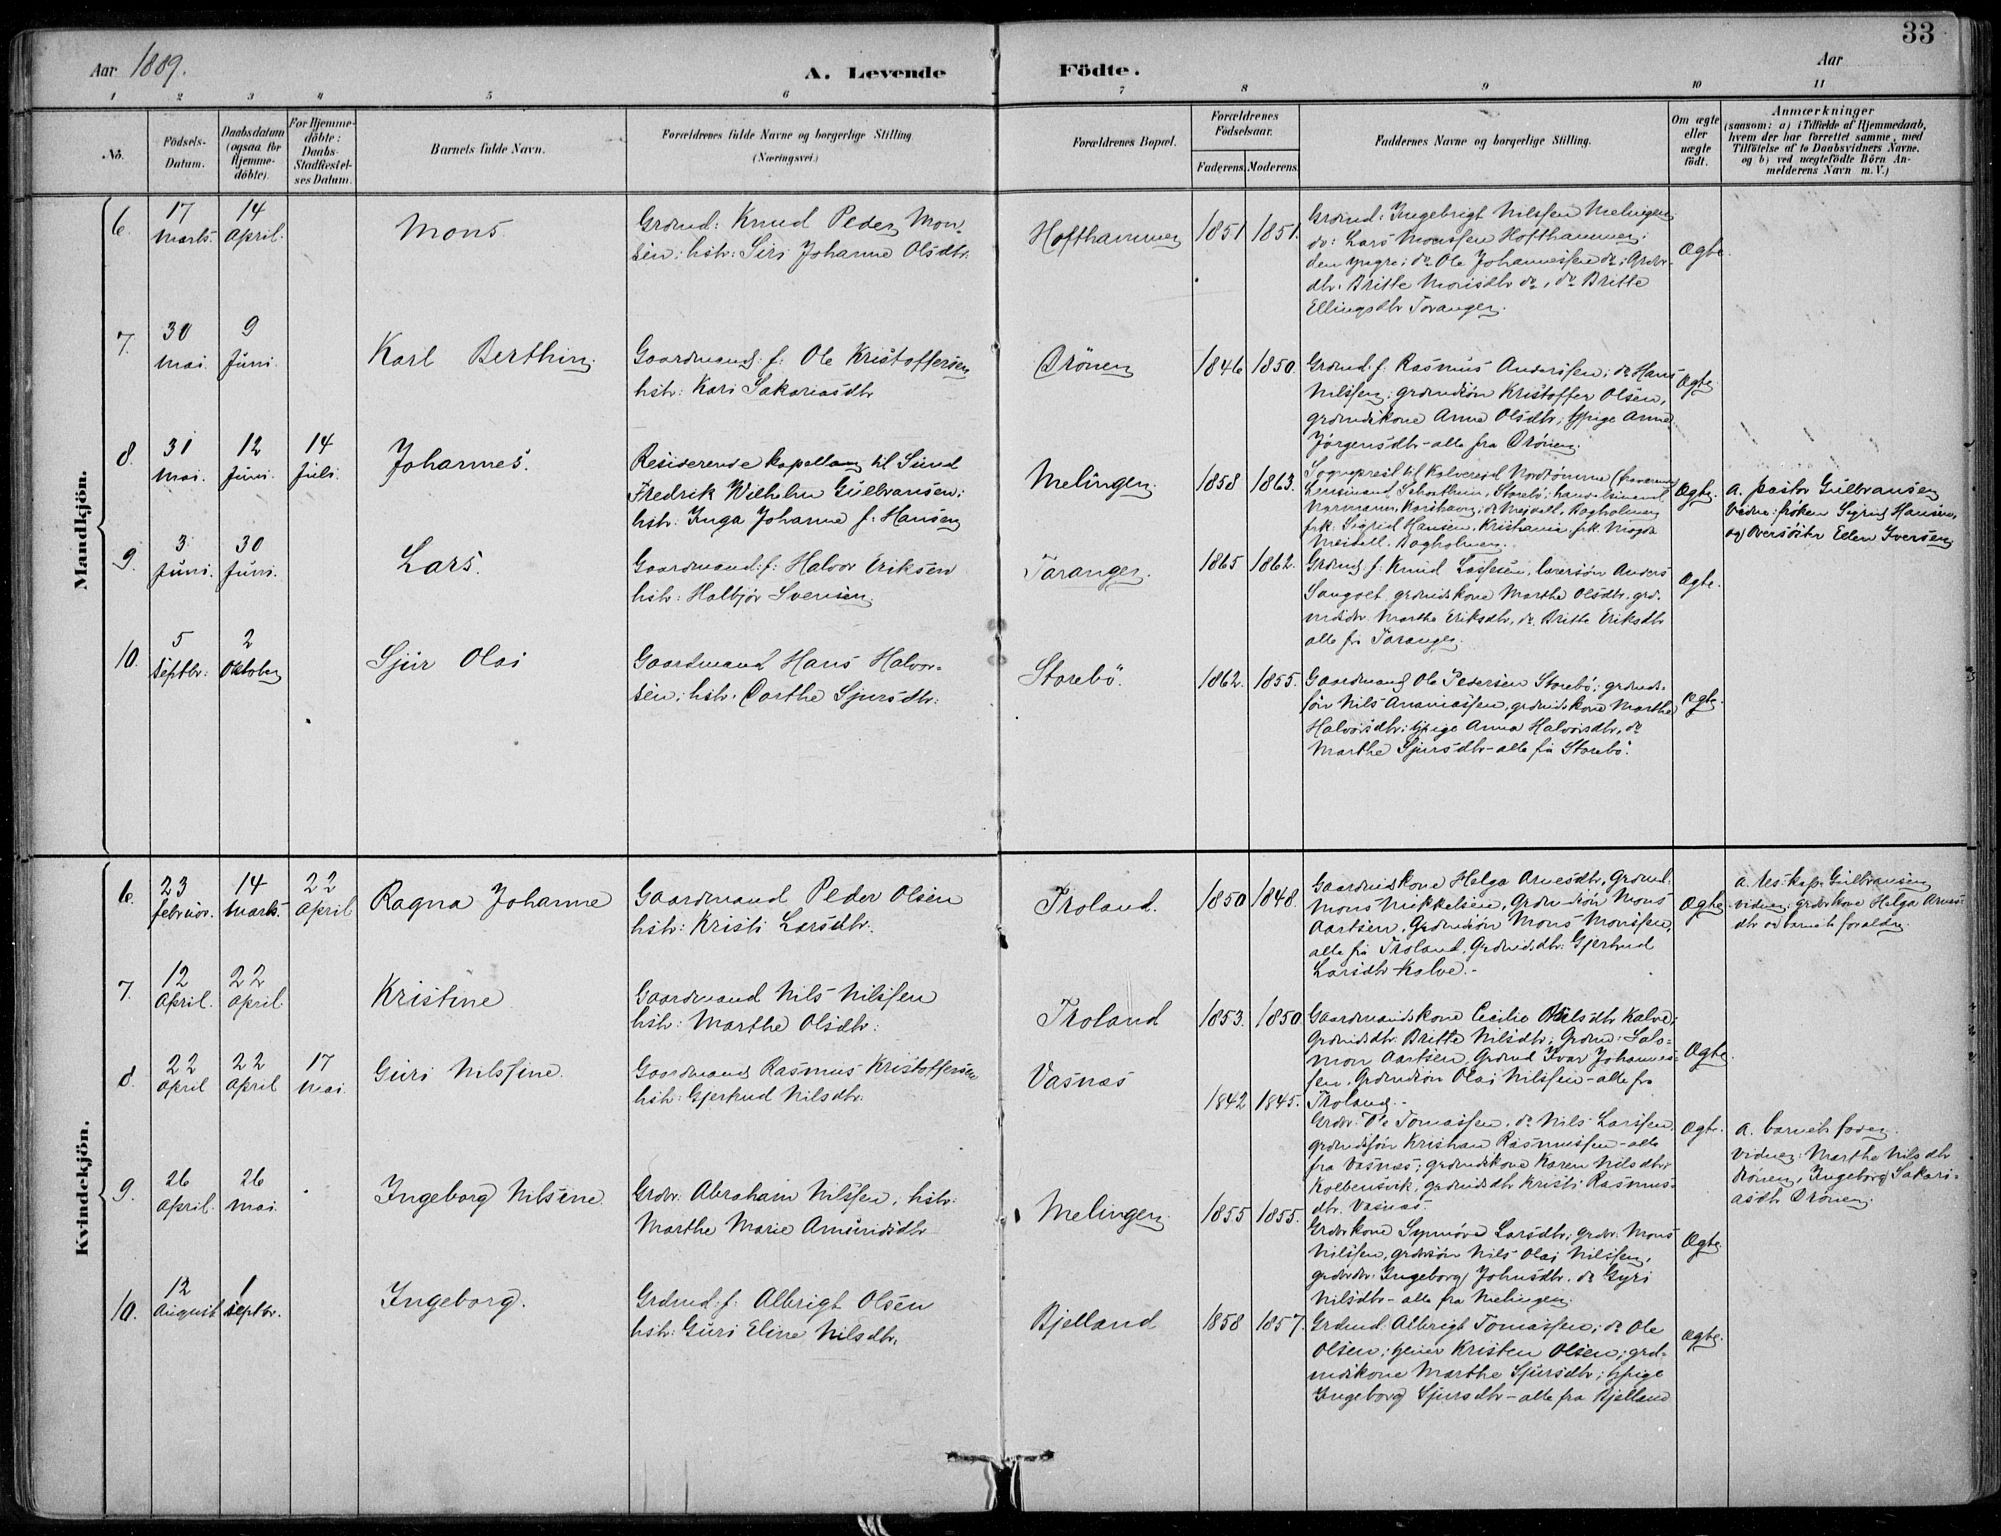 33
Aar 1889.
A. Levende
Födte.
Aar
1 2 3 4 5 6 7 8 9 10 11
No.
Födsels-
Datum.
Daabsdatum
(ogsaa for
Hjemme-
döbte).
For Hjemme-
döbte:
Daabs-
Stadfæstel-
ses Datum.
Barnets fulde Navn.
Forældrenes fulde Navne og borgerlige Stilling
(Næringsvei.)
Forældrenes Bopæl.
Forældrenes
Födselsaar.
Faderens.
Moderens.
Faddernes Navne og borgerlige Stilling.
Om ægte
eller
uægte
födt.
Anmærkninger
(saasom: a) i Tilfælde af Hjemmedaab,
hvem der har forrettet samme, med
Tilföielse af to Daabsvidners Navne,
og b) ved uægtefödte Börn An-
melderens Navn m. V.)
Mandkjön.
6.
17
Marts.
14
April.
Mons
Grdmd: Knud Peder Mon-
sen; hstr: Siri Johanne Olsdtr.
Hofthammer
1851
1851.
Grdmd: Ingebrigt Nilssen Melingen
do: Lars Monssen Hofthammer;
den yngre; do Ole Johannessen do; Grdbr-
dtr. Britte Monsdtr do, do Britte
Ellingsdtr Toranger.
Ægte.
7.
30
Mai.
9
Juni.
Karl Berthin.
Gaardmand: f: Ole Kristoffersen
hstr: Kari Sakariasdtr
Drönen
1846
1850.
Grdmd: f. Rasmus Anderssen; do Hans
Nilssen; grdmdsön Kristoffer Olsen,
grdmdskone Anne Olsdtr; pige Anne
Jörgensdtr - alle fra Drönen.
Ægte
8.
31
Mai.
12
Juni.
14
Juli.
Johannes.
Residerende kapellan til Sund
Fredrik Wilhelm Gulbransen;
hstr: Inga Johanne f: Hansen
Melingen.
1858
1863.
Storebö; handelsmand
frk: Sigrid Hansen, Kristiania, frk Magda
Meidell, Bagholmen.
Ægte.
a. pastor Gulbransen
vidne: fröken Sigrid Hansen,
og Ellen Iversen
9.
3
Juni.
30
Juni.
Lars.
Gaardmand: f: Halvor Eriksen
hstr: Halbjör Svensen.
Toranger.
1865
1862.
Grdmd f: Knud Lassesen, lærersön Anders
grdmdskone Marthe Olsdtr, grd-
mdsdtr. Marthe Eriksdtr, do. Britte Eriksdtr
alle fr Toranger.
Ægte.
10.
5
Septbr:
2
Oktober
Sjur Olai
Gaardmand Hans Halvor-
sen; hstr. Dorthe Sjursdtr:
Storebö.
1862.
1855.
Gaardmand Ole Pedersen Storebö; grdmds-
sön Nils Ananiassen, grdmdskone Marthe
Halvorsdtr; pige Anna Halvorsdtr, do
Marthe Sjursdtr - alle fra Storebö.
Ægte.
Kvindekjön.
6.
23
februar.
14
Marts.
22
April
Ragna Johanne
Gaardmand Peder Olsen
hstr: Kristi Larsdtr.
Troland.
1850
1848.
Gaardmdskone Helga Arnesdtr, Grdmd:
Mons Mikkelsen, Grdmdsön Mons
Aartsen, Grdmdsön Mons Monssen,
alle fra Troland, Grdmdsdtr: Gjertrud
Larsdtr Kalve.-
Ægte
a. res. kap. Gulbransen
vidner: grdbrkone Helga Arnes-
dtr og barnets forældre.
7.
12
April.
22
April.
Kristine
Gaardmand Nils Nilssen
hstr: Marthe Olsdtr:
Troland
1853.
1850
Gaardmandskone Cecilie Nilsdtr Kalve;
Grdmdsdtr: Britte Nilsdtr; Grdmd: Salo-
mon Aartsen, Grdmd Ivar Johannes-
sen, Grdmdsön Olai Nilssen - alle fra
Troland.-
Ægte.
8.
22
April
22
April
17
Mai.
Guri Nilssine.
Gaardmand Rasmus Kristoffersen
hstr: Gjertrud Nilsdtr.
Vasnæs
1842
1845.
Grdbr: Ole Tomassen, do Nils Larssen.
grdmdssön Kristian Rasmussen - alle
fra Vasnæs; grdmdskone Karen Nilsdtr
Kolbensvik, grdmdsdtr Kristi Rasmus-
dtr. Vasnæs.
Ægte.
a. barnets fader.
vidner: Marthe Nilsdtr
Drönen, Ingeborg Sakari-
asdtr Drönen.
9.
26
April.
26
Mai.
Ingeborg Nilsine
Grdbr: Abraham Nilssen, hstr:
Marthe Marie Amundsdtr
Melingen
1855
1855.
Grdbrkone Synnöve Larsdtr; grdbr: Mons
Nilssen, grdbrsön Nils Olai Nilssen,
grdbrdtr: Ingeborg Johnsdtr. do Gyri
Nilsdtr - alle fra Melingen.
Ægte.
10.
12
August
1
Septbr.
Ingeborg.
Grdmd: f: Albrigt Olsen
hstr: Guri Eline Nilsdtr.
Bjelland
1858
1857.
Grdmd. Albrigt Tomassen; do Ole
Olsen; Kristen Olsen; grd-
mdskone Marthe Sjursdtr; pige
Ingeborg Sjursdtr - alle fra Bjelland
Ægte.